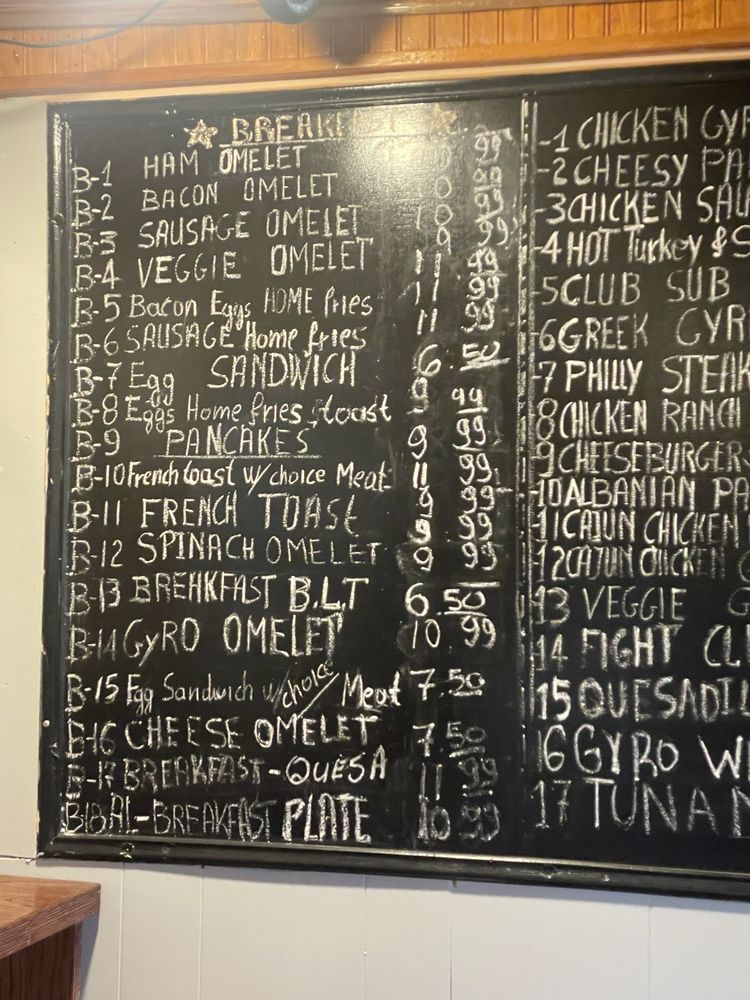 BREAKFAST
B-1 HAM OMELET
B-2 BACON OMELET
B-3 SAUSAGE OMELET
B-4 VEGGIE OMELET
B-5 Bacon Eggs HOME fries
B-6 SAUSAGE Home fries
B-7 Egg SANDWICH 6.50
B-8 Eggs Home fries, toast 9 99
B-9 PANCAKES 9 99
B-10 French toast w/ choice Meat 11 99
B-11 FRENCH TOAST 9 99
B-12 SPINACH OMELET 9 99
B-13 BREHKFAST B.L.T 6.50
B-14 GYRO OMELET 10.99
B-15 Egg Sandwich w/ choice Meat 7.50
B-16 CHEESE OMELET 7.50
B-17 BREAKFAST-QUESA 11 99
B18 AL-BREAKFAST PLATE 10 99
-1 CHICKEN GYR
-2 CHEESY PA
-3 CHICKEN SAU
-4 HOT Turkey & S
-5 CLUB SUB
-6 GREEK GYR
-7 PHILLY STEAK
8 CHICKEN RANCH
9 CHEESEBURGER
10 ALBANIAN PA
11 CAJUN CHICKEN
12 CAJUN CHICKEN
13 VEGGIE G
14 FIGHT CL
15 QUESADIL
16 GYRO W
17 TUNA